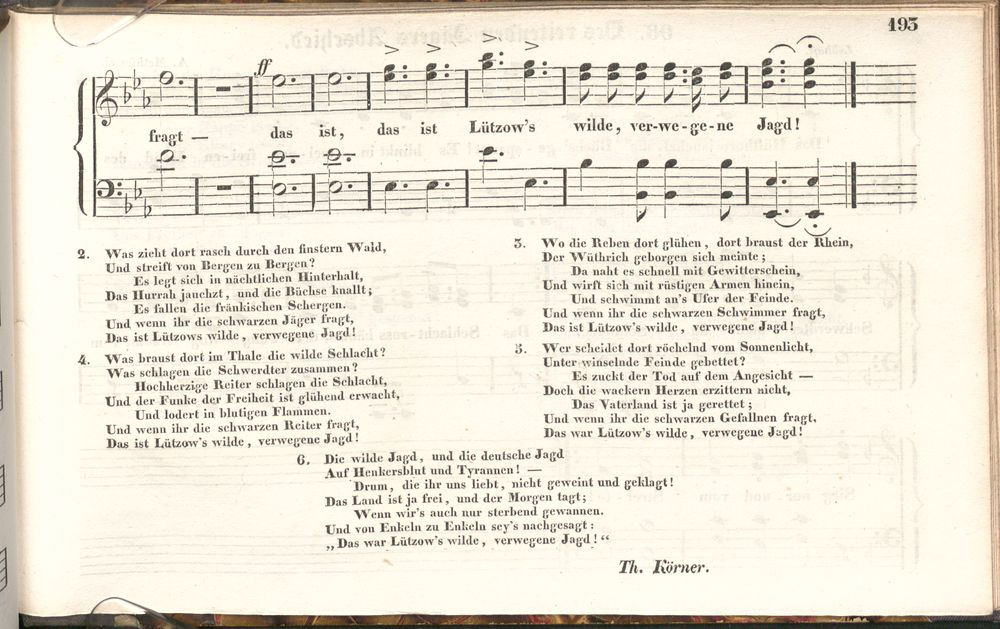 195
ff
fragt — das ist, das ist Lützow's wilde, ver-we-ge-ne Jagd!
2. Was zieht dort rasch durch den finstern Wald,
Und streift von Bergen zu Bergen?
Es legt sich in nächtlichen Hinterhalt,
Das Hurrah jauchzt, und die Büchse knallt;
Es fallen die fränkischen Schergen.
Und wenn ihr die schwarzen Jäger fragt,
Das ist Lützows wilde, verwegene Jagd!
3. Wo die Reben dort glühen, dort braust der Rhein,
Der Wüthrich geborgen sich meinte;
Da naht es schnell mit Gewitterschein,
Und wirft sich mit rüstigen Armen hinein,
Und schwimmt an's Ufer der Feinde.
Und wenn ihr die schwarzen Schwimmer fragt,
Das ist Lützow's wilde, verwegene Jagd!
4. Was braust dort im Thale die wilde Schlacht?
Was schlagen die Schwerdter zusammen?
Hochherzige Reiter schlagen die Schlacht,
Und der Funke der Freiheit ist glühend erwacht,
Und lodert in blutigen Flammen.
Und wenn ihr die schwarzen Reiter fragt,
Das ist Lützow's wilde, verwegene Jagd!
5. Wer scheidet dort röchelnd vom Sonnenlicht,
Unter winselnde Feinde gebettet?
Es zuckt der Tod auf dem Angesicht —
Doch die wackern Herzen erzittern nicht,
Das Vaterland ist ja gerettet;
Und wenn ihr die schwarzen Gefallnen fragt,
Das war Lützow's wilde, verwegene Jagd!
6. Die wilde Jagd, und die deutsche Jagd
Auf Henkersblut und Tyrannen! —
Drum, die ihr uns liebt, nicht geweint und geklagt!
Das Land ist ja frei, und der Morgen tagt;
Wenn wir's auch nur sterbend gewannen.
Und von Enkeln zu Enkeln sey's nachgesagt:
„Das war Lützow's wilde, verwegene Jagd!“
Th. Körner.